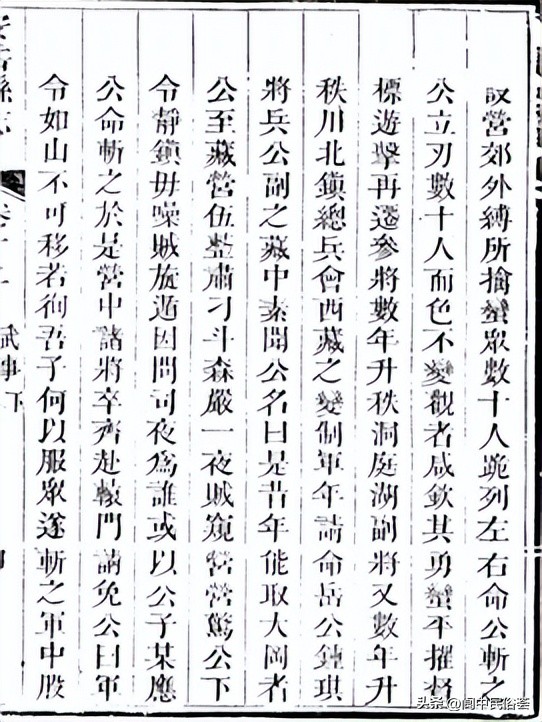 設營郊外縛所擒蠻眾數十人跪列左右命公斬之
公立刃數十人而色不變觀者咸欽其勇蠻平擢督
標遊擊再遷參將數年升秩洞庭湖副將又數年升
秩川北鎮總兵會西藏之變制軍年請命岳公鍾琪
將兵公副之藏中素聞公名曰是昔年能取大岡者
公至藏營伍整肅刁斗森嚴一夜賊窺營營驚公下
令靜鎮毋噪賊旋遁因問司夜為誰或以公子某應
公命斬之於是營中諸將卒齊赴轅門請免公曰軍
令如山不可移若徇吾子何以服眾遂斬之軍中股
武事下
头条@阆中民俗荟